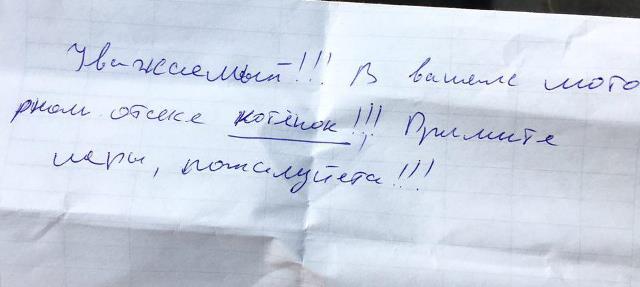 Уважаемый!!! В вашем мото
рном отсеке котёнок!!! Примите
меры, пожалуйста!!!